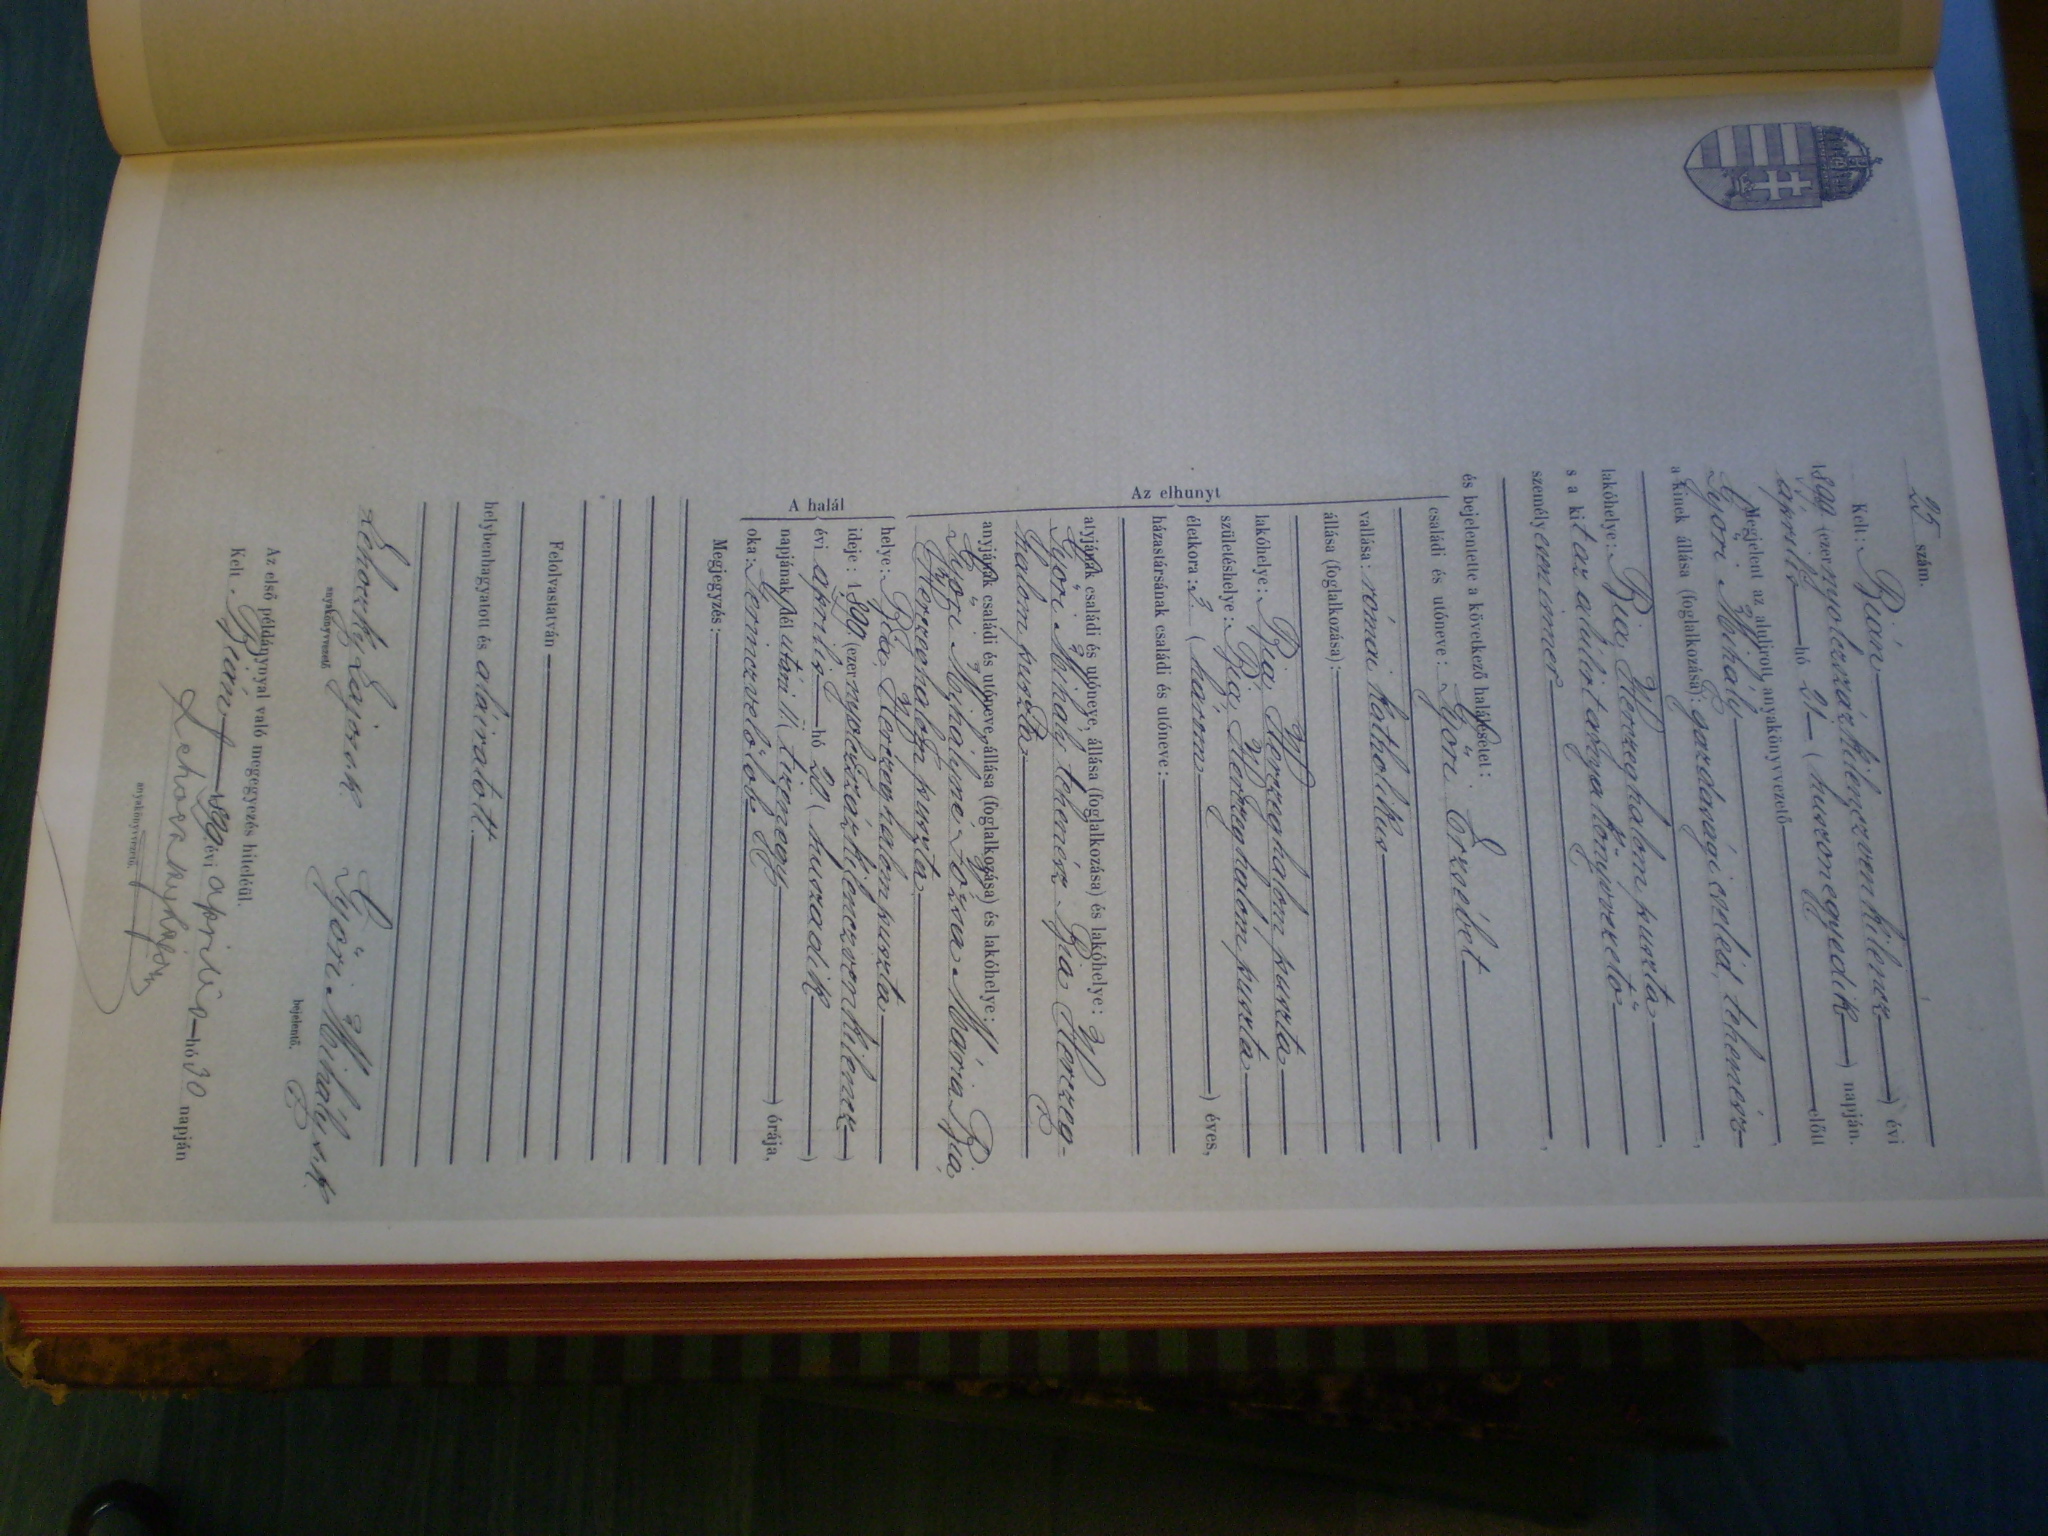 25 szám.
Kelt: Bián (ezernyolczszázkilenczvenkilencz) évi
április hó 21 (huszonegyedik) napján.
Megjelent az alulirott anyakönyvvezető előtt
Győri Mihály,
a kinek állása (foglalkozása): gazdasági cseléd, tehenész,
lakóhelye: Bia, Herczeghalom puszta,
s a kit az alulirt anyakönyvvezető
személyesen ismer,
és bejelentette a következő halálesetet:
Az elhunyt
családi és utóneve: Győri Erzsébet
vallása: római katholikus
állása (foglalkozása):
lakóhelye: Bia, Herczeghalom puszta
születéshelye: Bia, Herczeghalom puszta
életkora: 3 (három) éves,
házastársának családi és utóneve:
atyjának családi és utóneve, állása (foglalkozása) és lakóhelye:
Győri Mihály tehenész Bia Herczeg-
halom puszta
anyjának családi és utóneve, állása (foglalkozása) és lakóhelye:
Győri Mihályné Józsa Mária Bia,
Herczeghalom puszta
A halál
helye: Bia, Herczeghalom puszta
ideje: 1899. (ezernyolczszázkilenczvenkilencz)
évi április hó 20 (huszadik)
napjának dél utáni 11 (tizenegy) órája,
oka: Gerinczvelőlob
Megjegyzés:
Felolvastatván
helybenhagyatott és aláiratott.
Lehoczky Lajos s.k. Győri Mihály s.k.
anyakönyvvezető bejelentő.
Az első példánynyal való megegyezés hiteléül.
Kelt Bián 1899 évi április hó 30 napján
Lehoczky Lajos
anyakönyvvezető.